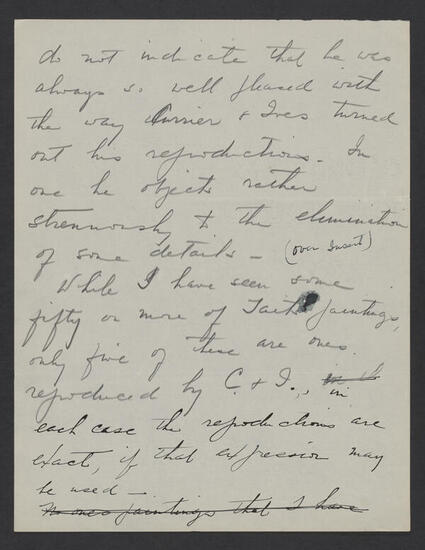 do not indicate that he was
always so well pleased with
the way Currier & Ives turned
out his reproductions. In
one he objects rather
strennously to the elimination
of some details - (over Insert)
While I have seen some
fifty or more of Tait paintings,
only five of these are ones
reproduced by C. & I., in
each case the reproductions are
exact, if that expression may
be used -
paintings that I have